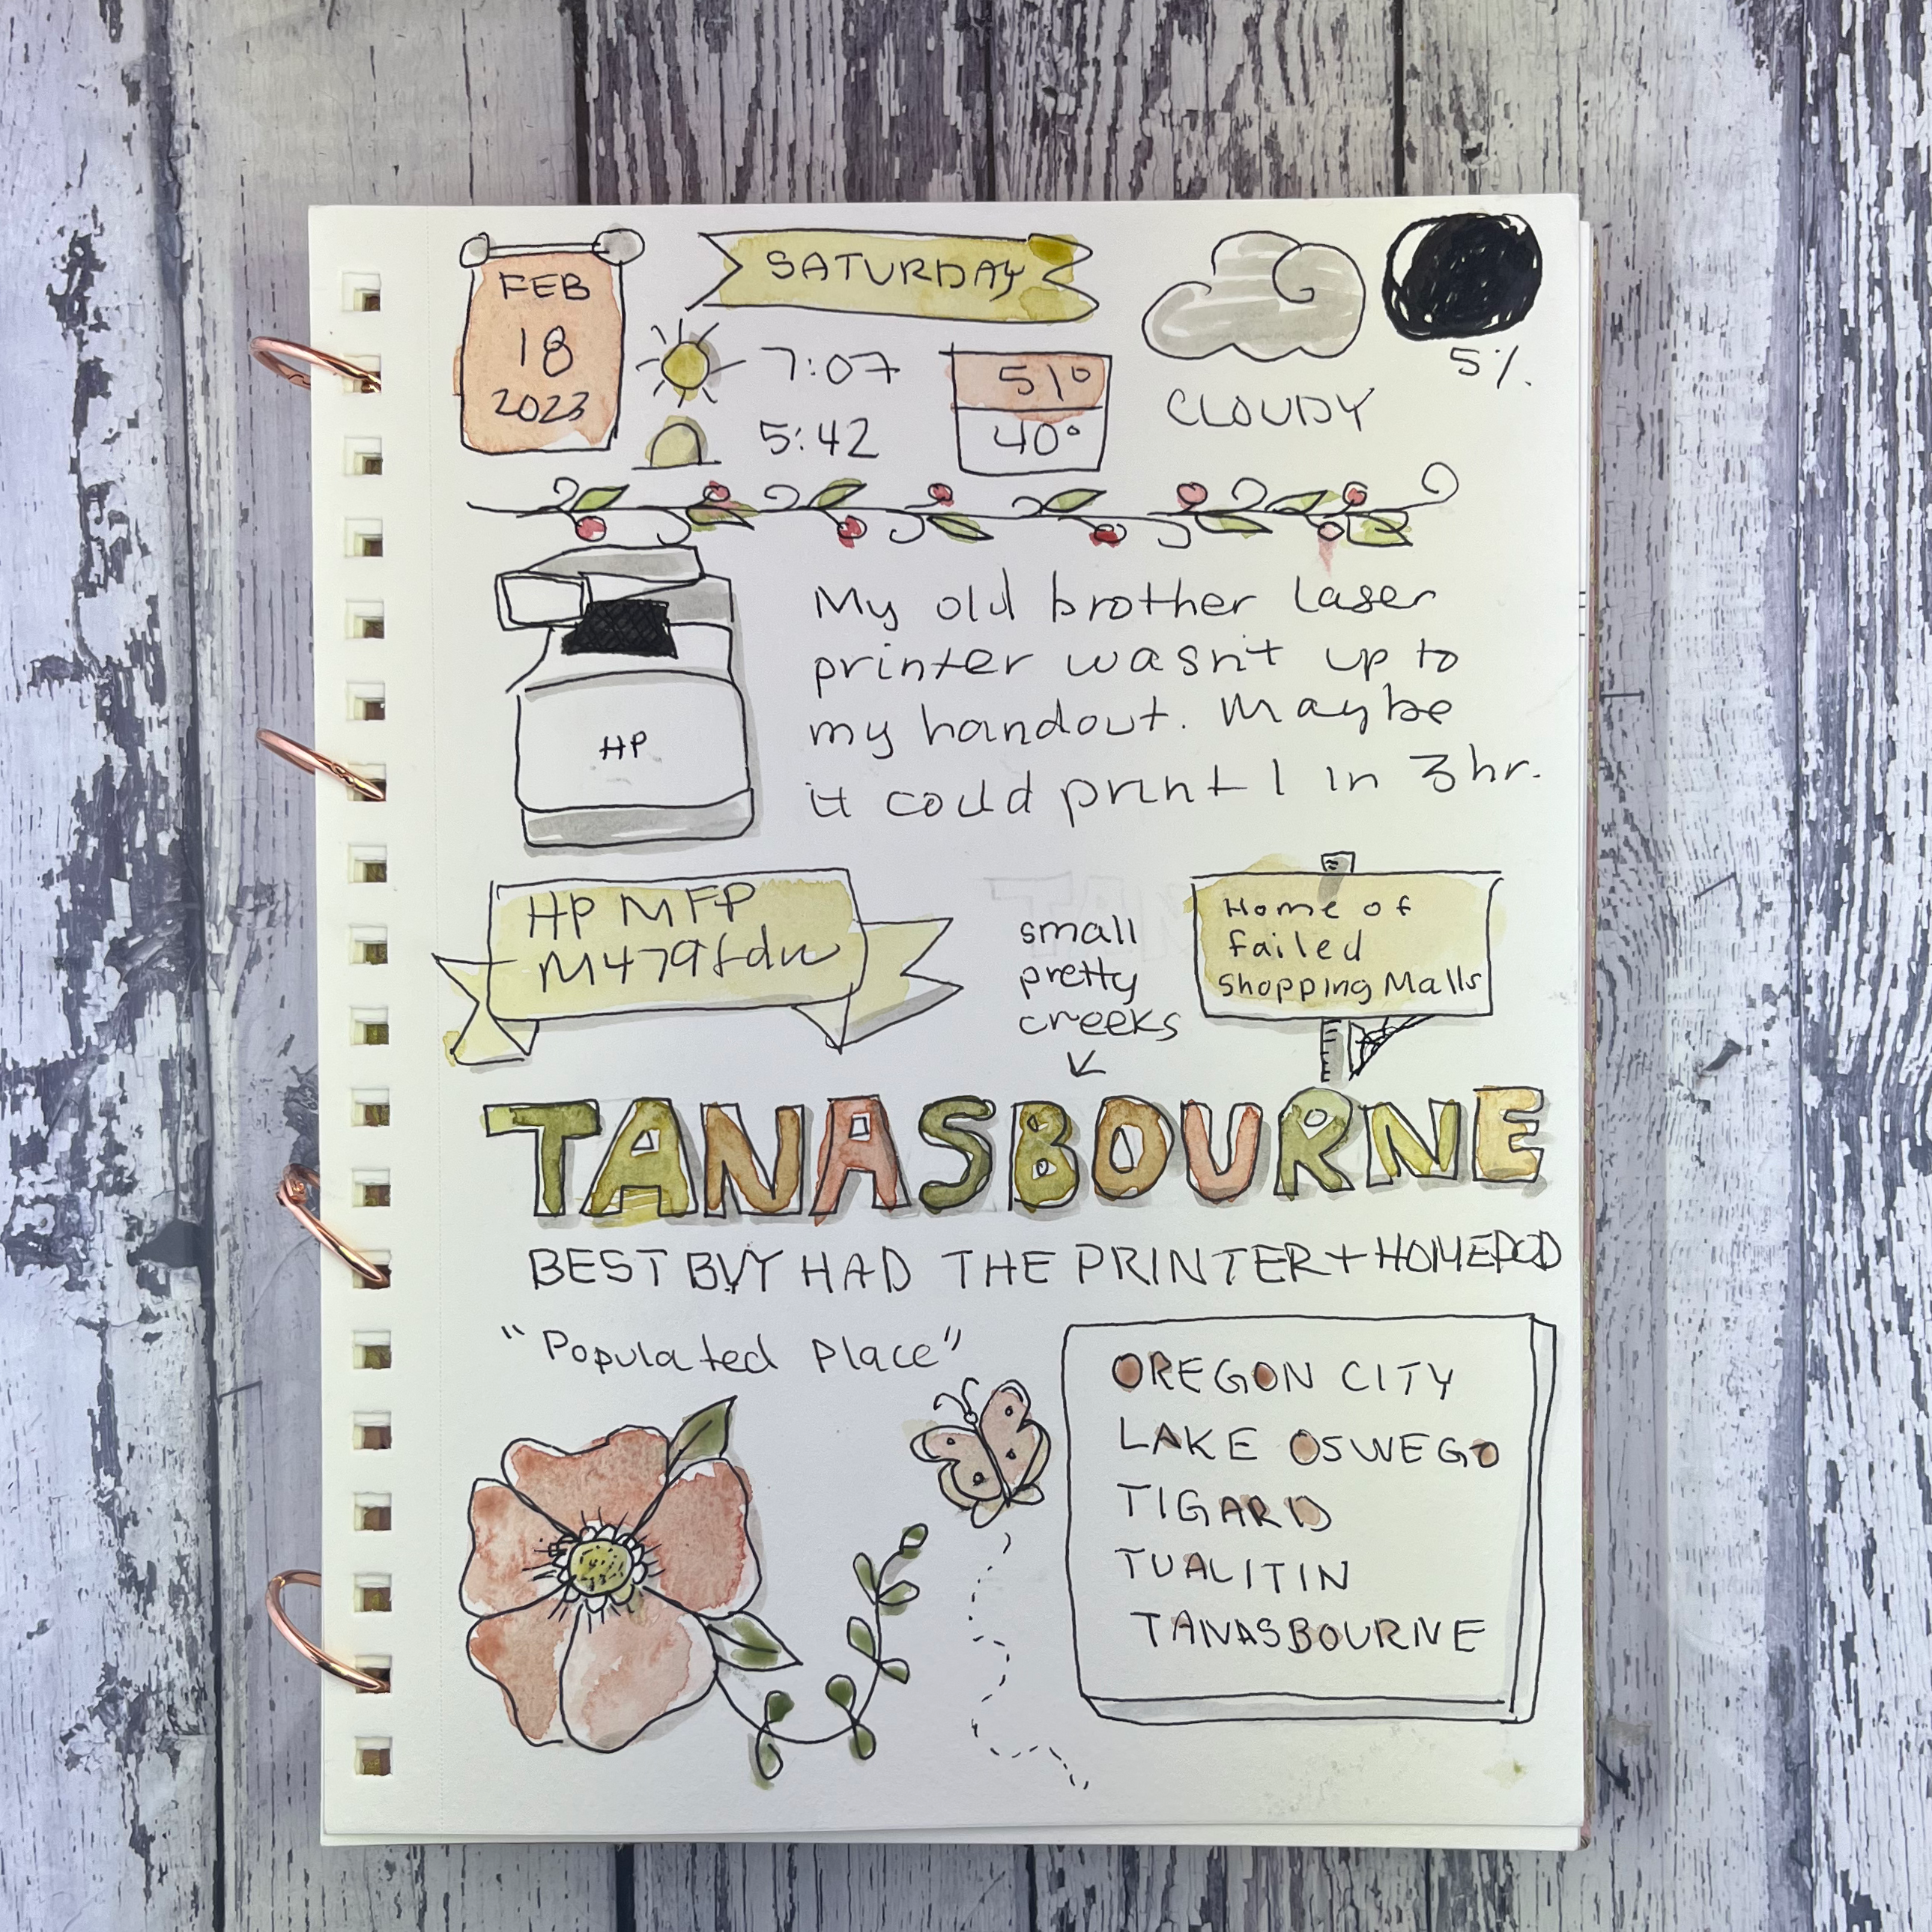 FEB
18
2023
SATURDAY
7:07
5:42
51°
40°
CLOUDY
5%
My old brother laser
printer wasn't up to
my handout. Maybe
it could print 1 in 3hr.
HP
HP MFP
M479fdw
small
pretty
creeks
Home of
failed
Shopping Malls
TANASBOURNE
BEST BUY HAD THE PRINTER + HOMEPOD
"Populated Place"
OREGON CITY
LAKE OSWEGO
TIGARD
TUALITIN
TANASBOURNE